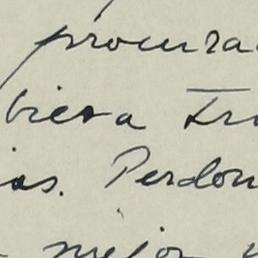 procura
biera Tra
as. Perdon
mejor